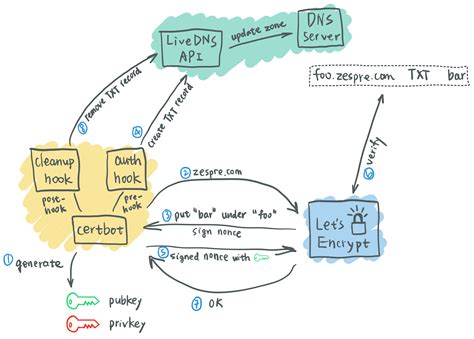 LiveDNS
API
update zone
DNS
Server
foo.zespre.com TXT bar
⑧ remove TXT record
④ create TXT record
cleanup
hook
auth
hook
post-
hook
pre-
hook
certbot
② zespre.com
③ put "bar" under "foo"
sign nonce
⑤ signed nonce with
⑥ verify
Let's
Encrypt
① generate
⑦ OK
pubkey
privkey